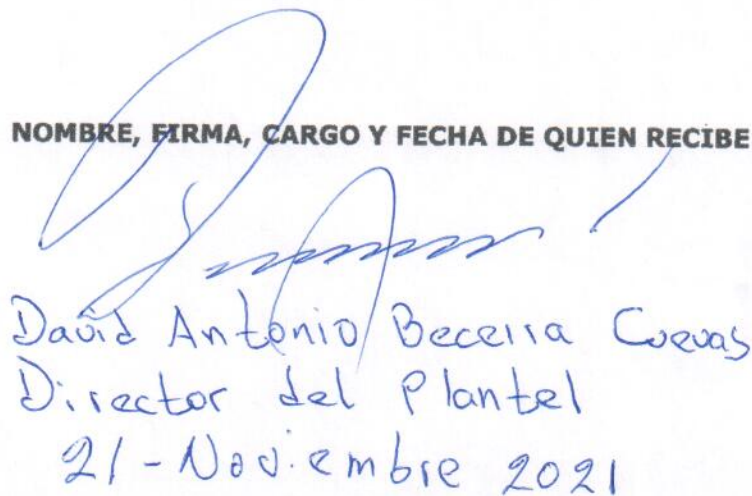 NOMBRE, FIRMA, CARGO Y FECHA DE QUIEN RECIBE
David Antonio Becerra Cuevas
Director del Plantel
21-Noviembre 2021